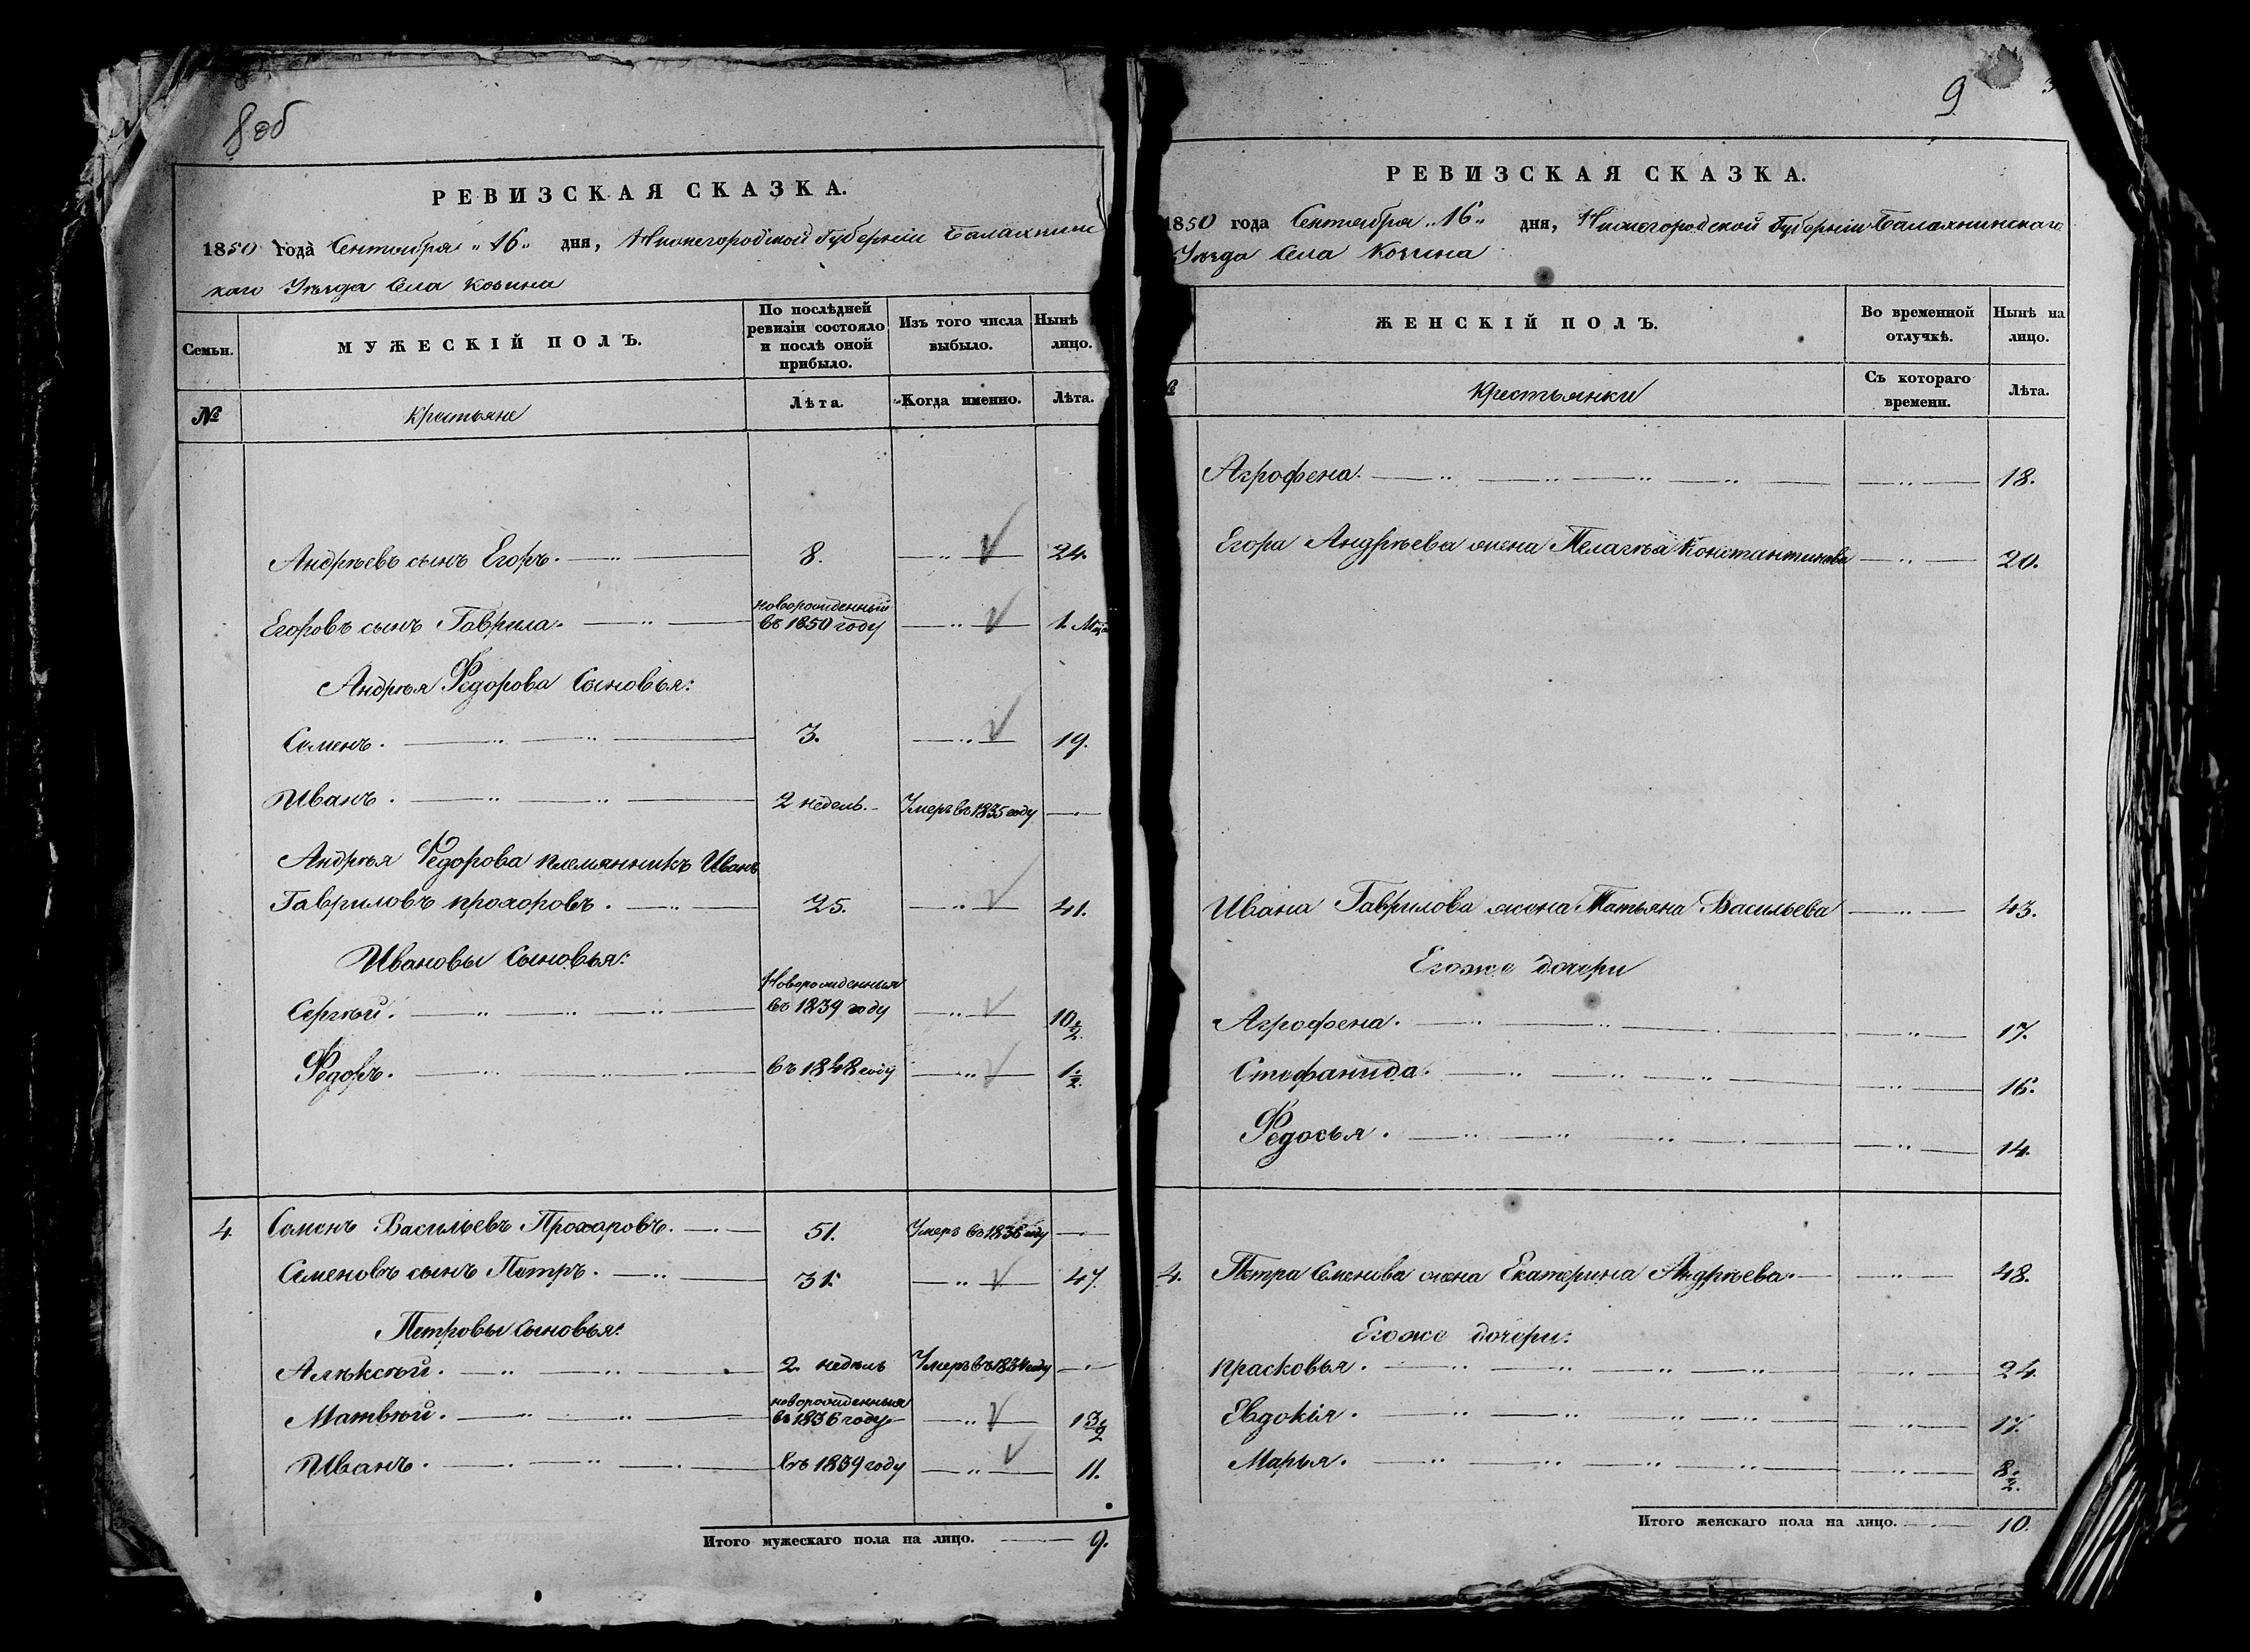 8 об
РЕВИЗСКАЯ СКАЗКА.
1850 года Сентября „16„ дня, Нижегородской Губерніи Балахнинс
каго Уѣзда Села Козина
Семьи.
МУЖЕСКІЙ ПОЛЪ.
По послѣдней ревизіи состояло и послѣ оной прибыло.
Изъ того числа выбыло.
Нынѣ лицо.
№
Крестьяне
Лѣта.
Когда именно.
Лѣта.
Андреевъ сынъ Егоръ. 8. 24.
Егоровъ сынъ Гаврила. новорожденный въ 1850 году 1. Мѣс
Андрея Федорова Сыновья:
Семенъ. 3. 19.
Иванъ. 2 недель. Умеръ въ 1835 году
Андрея Федорова племянникъ Иванъ
Гавриловъ прохоровъ. 25. 41.
Ивановы Сыновья:
Сергѣй. Новорожденныя въ 1839 году 10 ½.
Федоръ. въ 1848 году 1 ½.
4. Семенъ Васильевъ Прохоровъ. 51. Умеръ въ 1836 году
Семеновъ сынъ Петръ. 31. 47.
Петровы сыновья:
Алѣксѣй. 2 недѣль Умеръ въ 1834 году
Матвѣй. новорожденныя въ 1836 году 13 ½
Иванъ. въ 1839 году 11.
Итого мужескаго пола на лицо. 9.
9
РЕВИЗСКАЯ СКАЗКА.
1850 года Сентября „16„ дня, Нижегородской Губерніи Балахнинскаго
Уѣзда Села Козина
ЖЕНСКІЙ ПОЛЪ.
Во временной отлучкѣ.
Нынѣ на лицо.
Крестьянки
Съ котораго времени.
Лѣта.
Агрофена. 18.
Егора Андреева жена Пелагѣа Константинова 20.
Ивана Гаврилова жена Татьяна Васильева 43.
Егоже дочери
Агрофена. 17.
Стефанида. 16.
Федосья. 14.
4. Петра Семенова жена Екатерина Андреева. 48.
Егоже дочери:
прасковья. 24.
Евдокія. 17.
Марья. 8 ½.
Итого женскаго пола на лицо. 10.